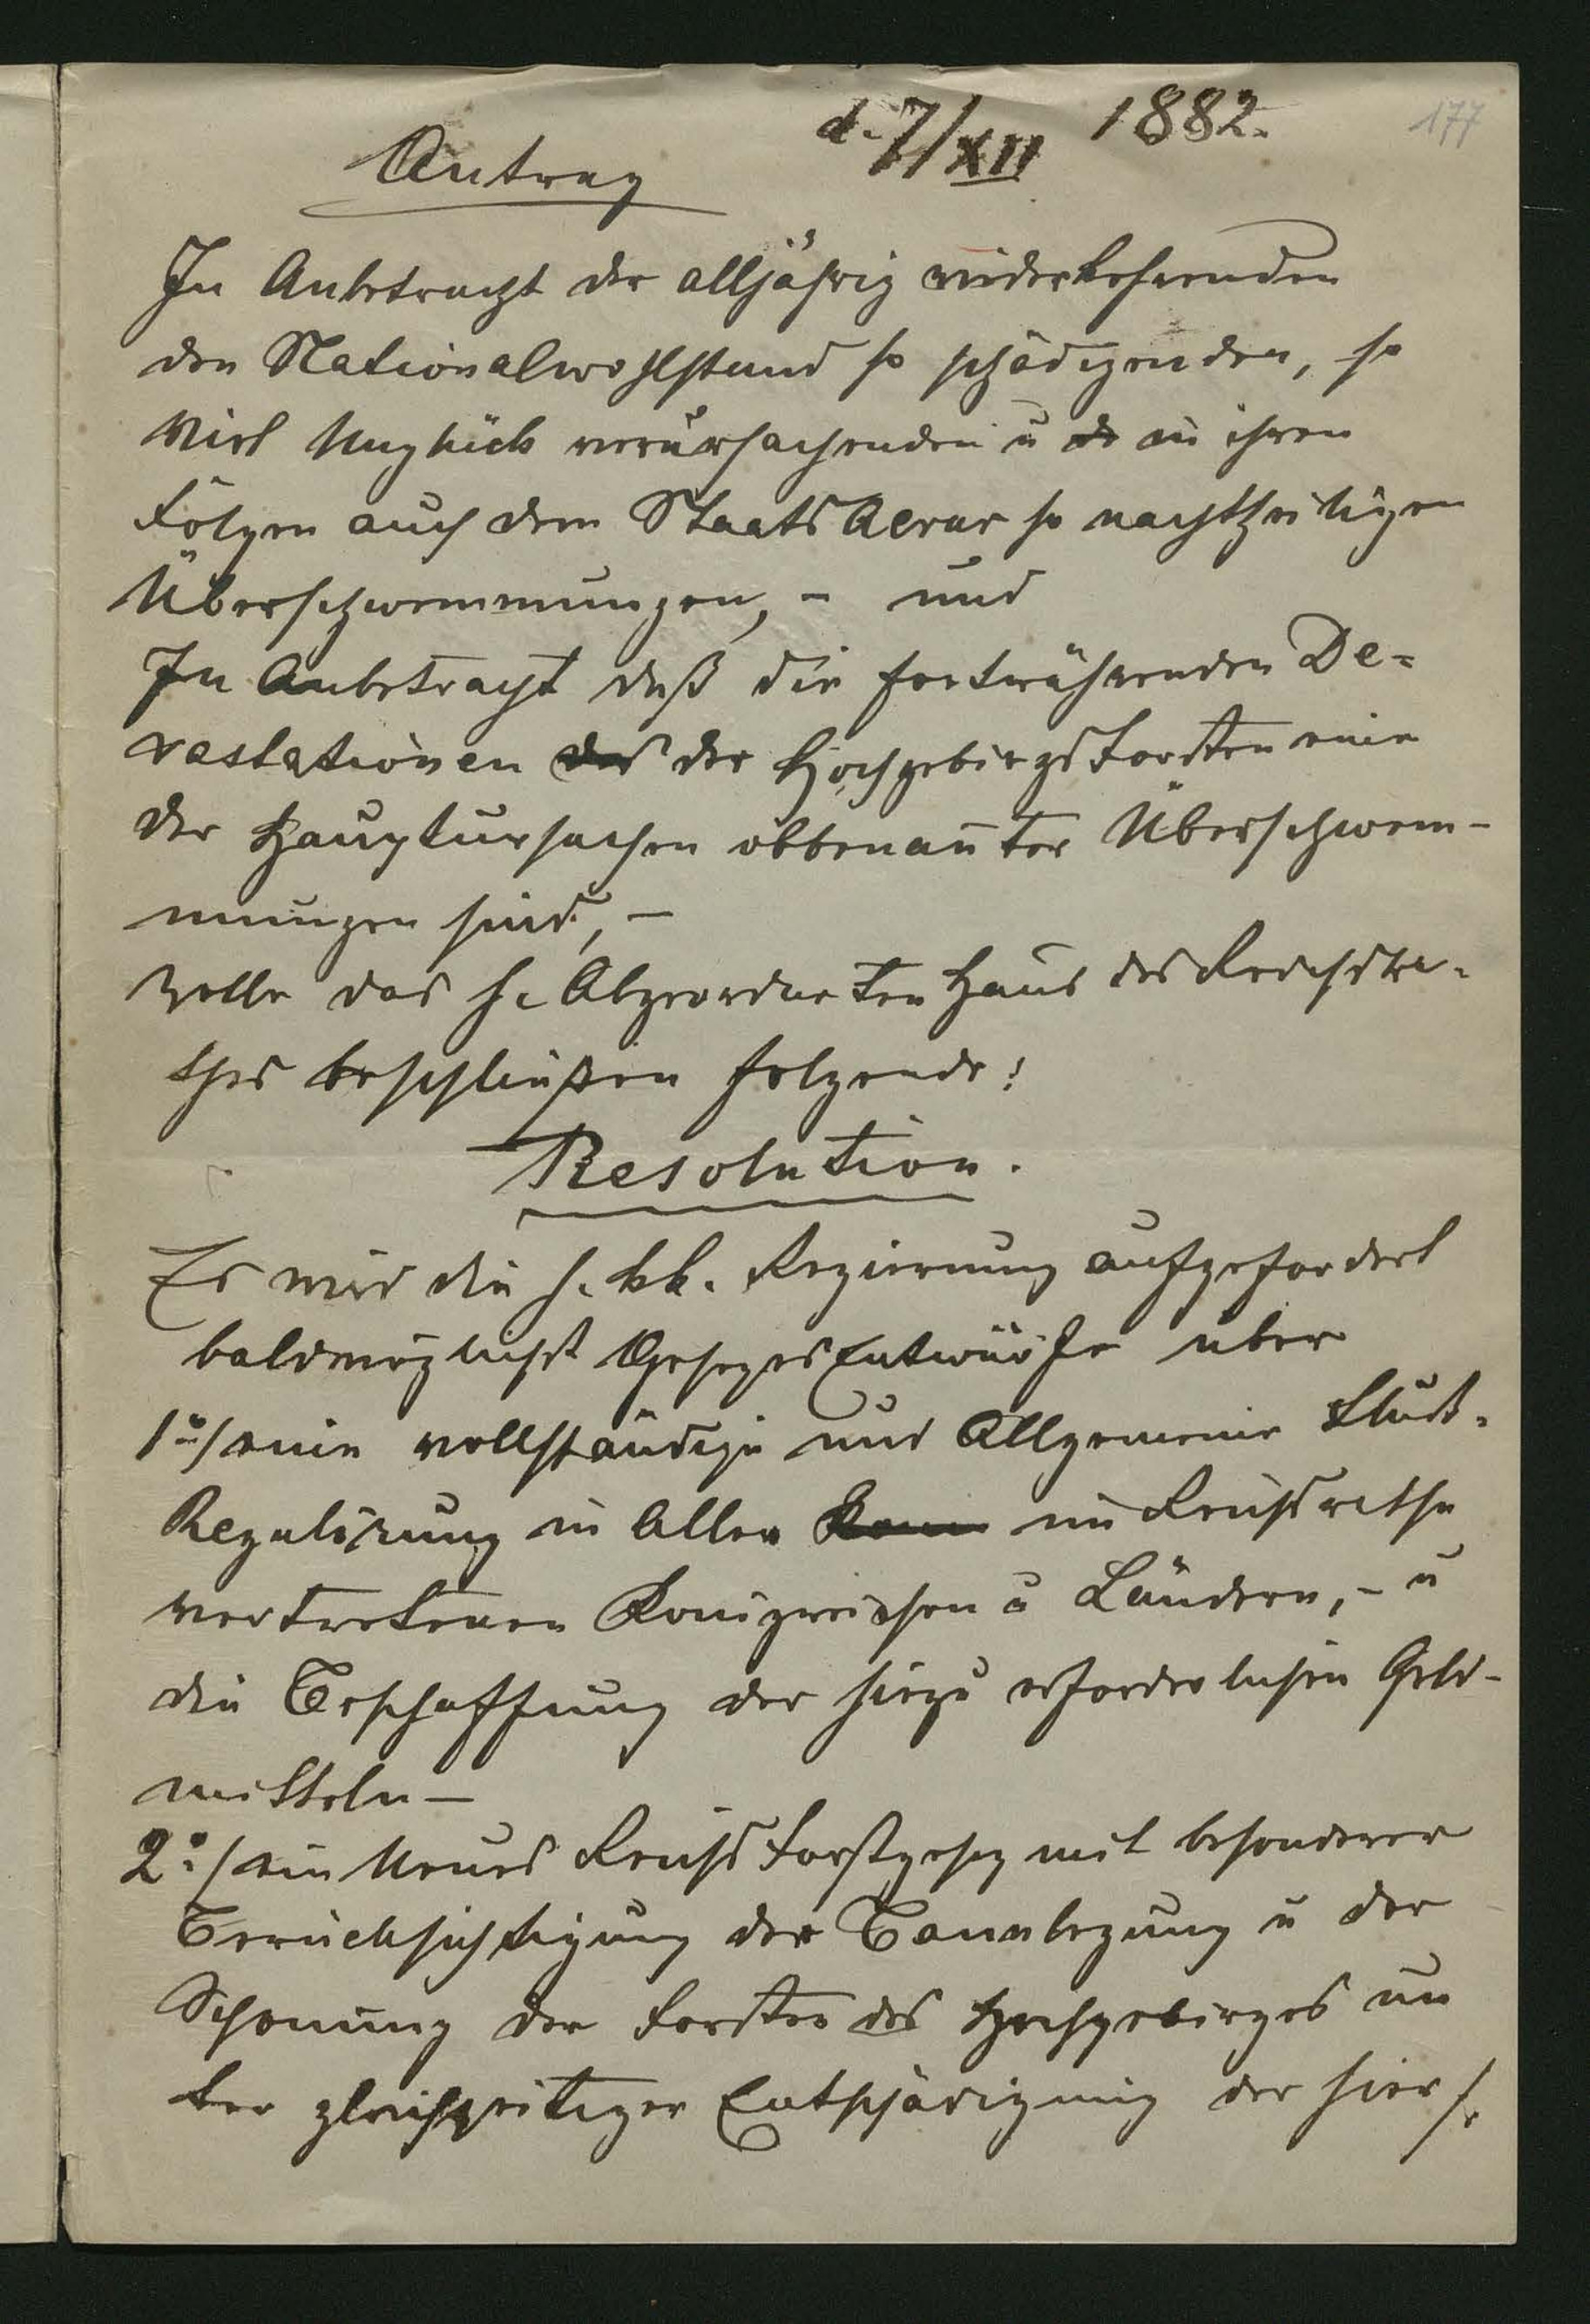 d. 7/XII 1882.
177
Antrag
In Anbetracht der alljährig widerkehrenden
den Nationalwohlstand so schädigenden, so
viel Unglück verursachenden u in ihren
Folgen auch dem StaatsAerar so nachtheiligen
Überschwemmungen, - und
In Anbetracht daß die fortwährenden De=
vastationen der HochgebirgsForsten eine
der Hauptursachen obbenannter Überschwem-
mungen sind, -
wolle das h. AbgeordnetenHaus des Reichsra-
thes beschließen folgende:
Resolution.
Es wird die h. kk. Regierung aufgefordert
baldmöglichst GesezesEntwürfe über
1o/ eine vollständige und Allgemeine Fluß-
Regulirung in Allen im Reichsrathe
vertretenen Königreichen u Ländern, - u
die Beschaffung der hiezu erforderlichen Geld-
mitteln -
2o/ ein Neues ReichsForstgesez mit besonderer
Berücksichtigung der Bannlegung u der
Schonung der Forsten des Hochgebirges un
ter gleichzeitiger Entschädigung der hier/.